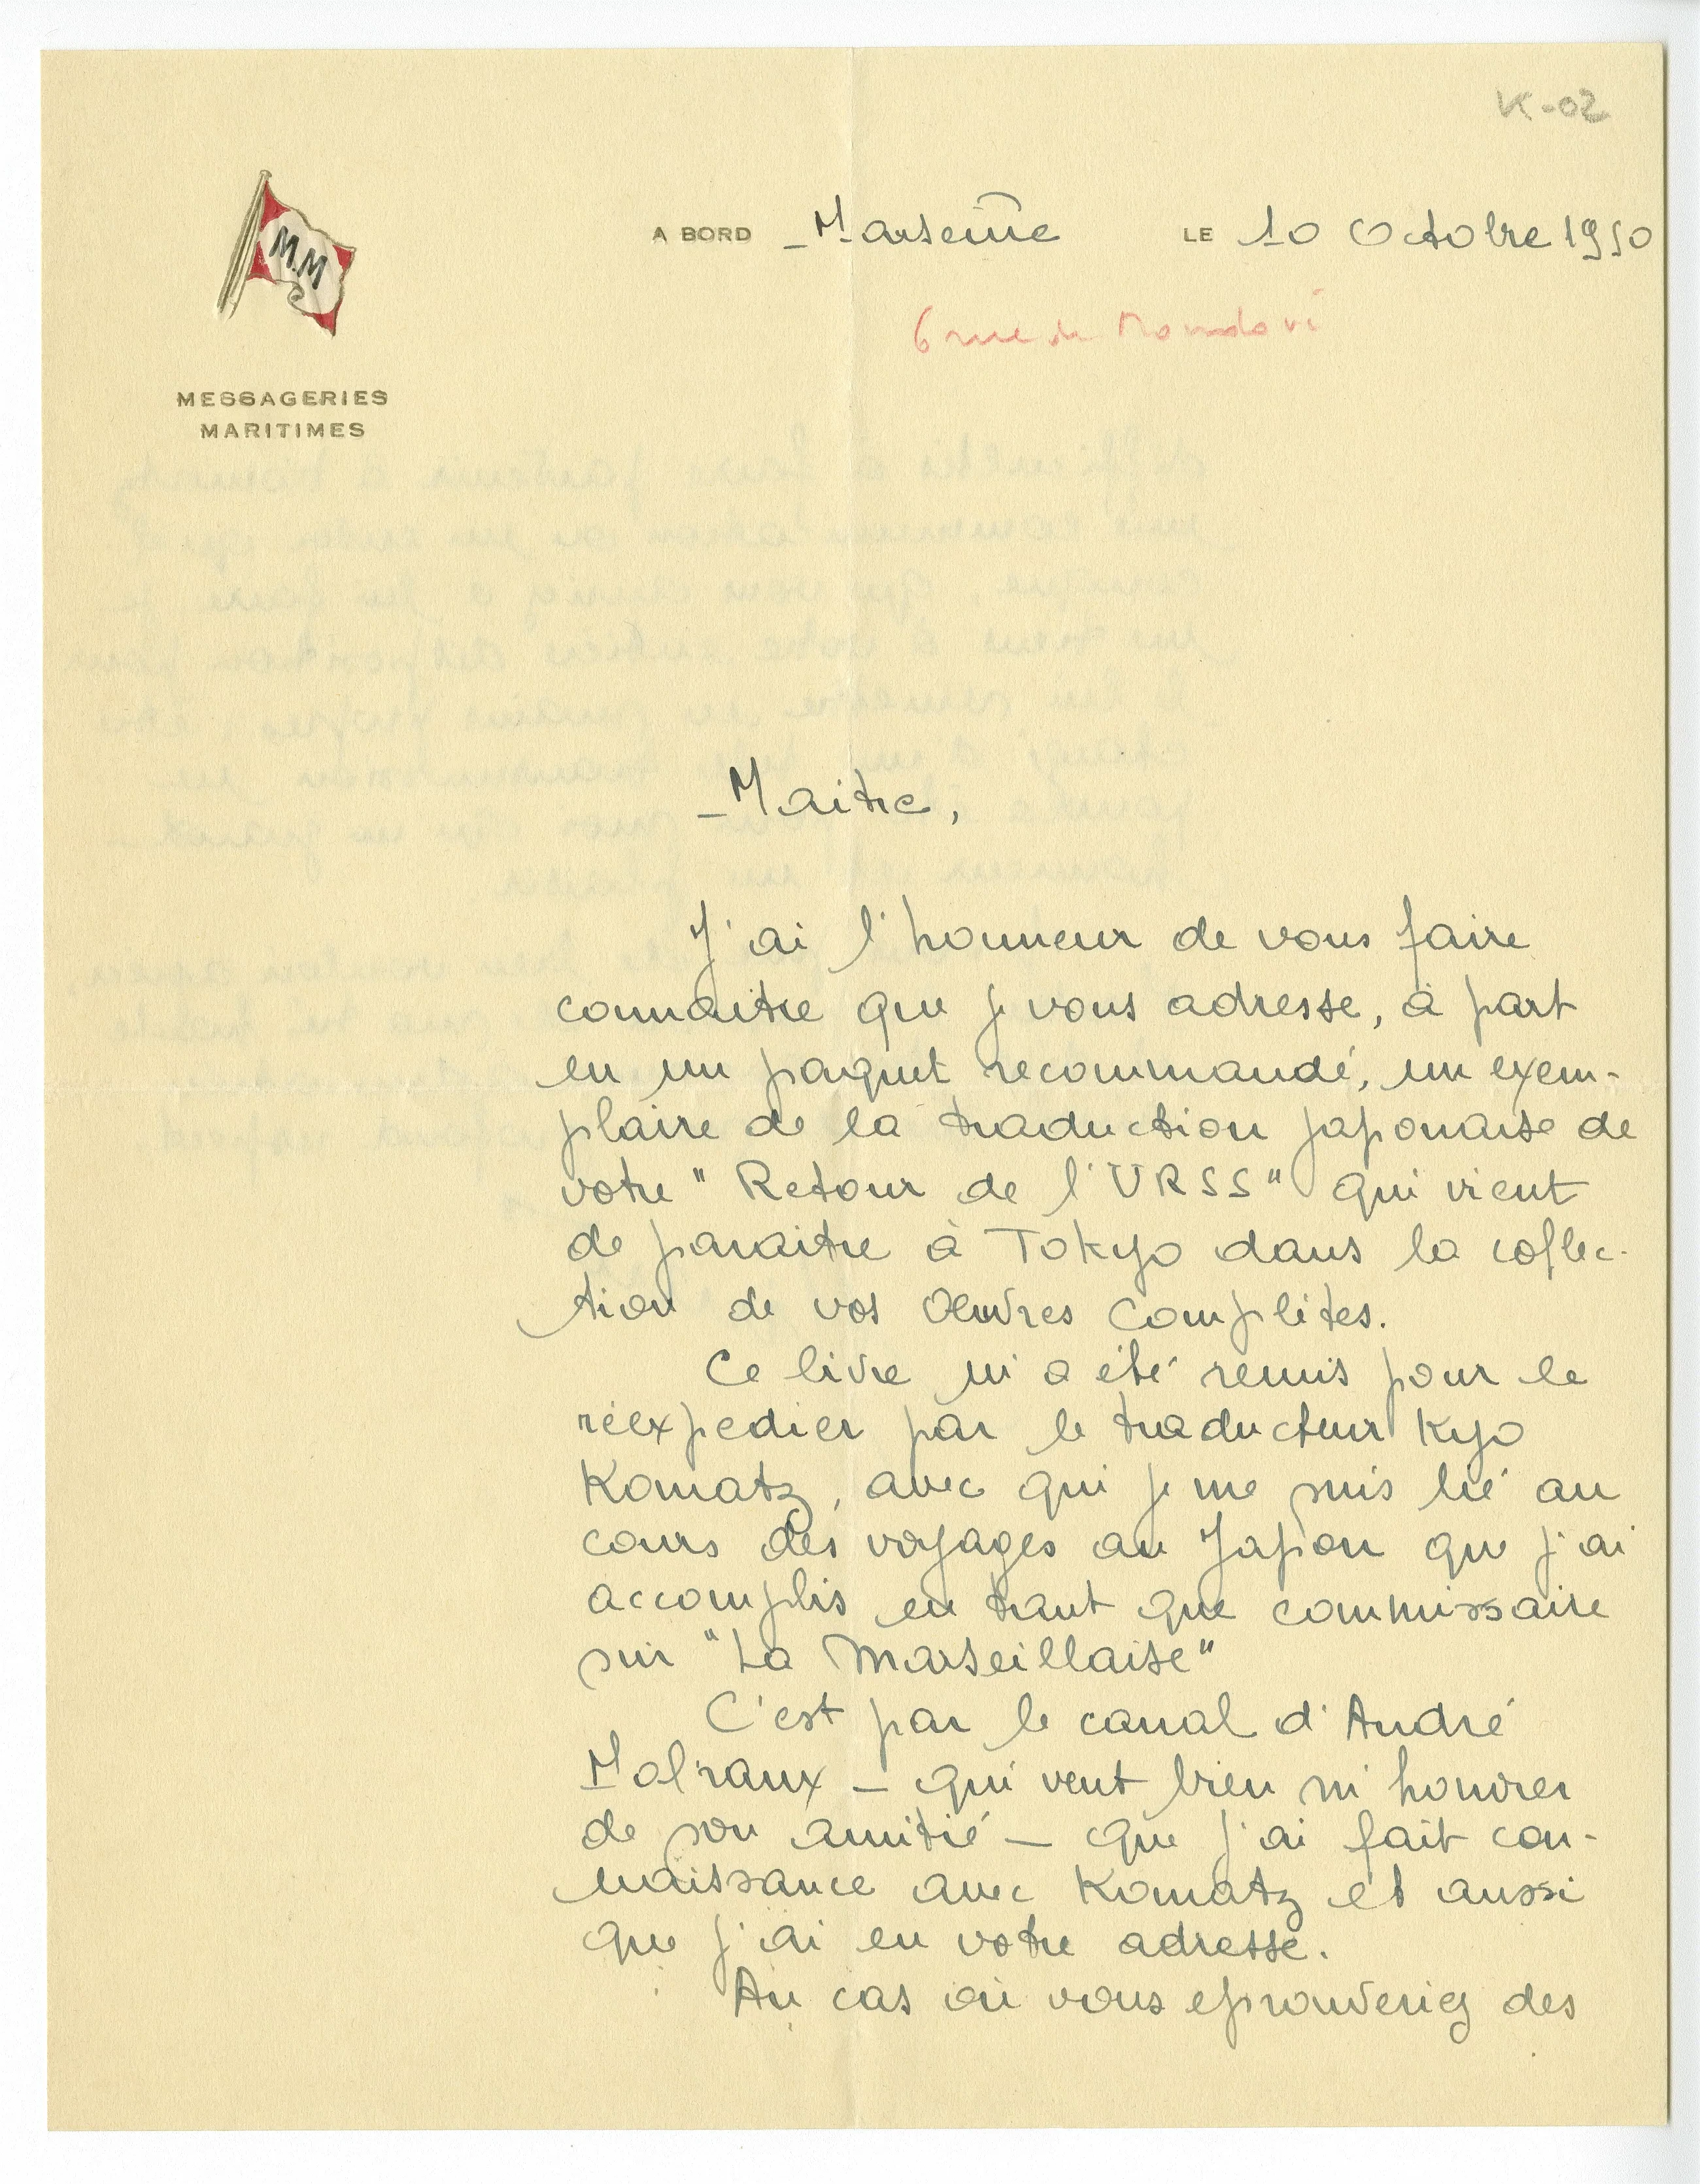 K-02
A BORD Marseille LE 10 Octobre 1950
6 rue de Mondovi
M.M
MESSAGERIES
MARITIMES
Maitre,
J'ai l'honneur de vous faire
connaitre que je vous adresse, à part
en un paquet recommandé, un exem-
plaire de la traduction japonaise de
votre "Retour de l'URSS" qui vient
de paraitre à Tokyo dans la collec-
tion de vos Oeuvres Complètes.
Ce livre m'a été remis pour le
réexpedier par le traducteur Kyo
Komatz, avec qui je me suis lié au
cours des voyages au Japon que j'ai
accomplis en tant que commissaire
sur "La Marseillaise"
C'est par le canal d'André
Malraux - qui veut bien m'honorer
de son amitié - que j'ai fait con-
naissance avec Komatz et aussi
que j'ai eu votre adresse.
Au cas où vous eprouveriez des